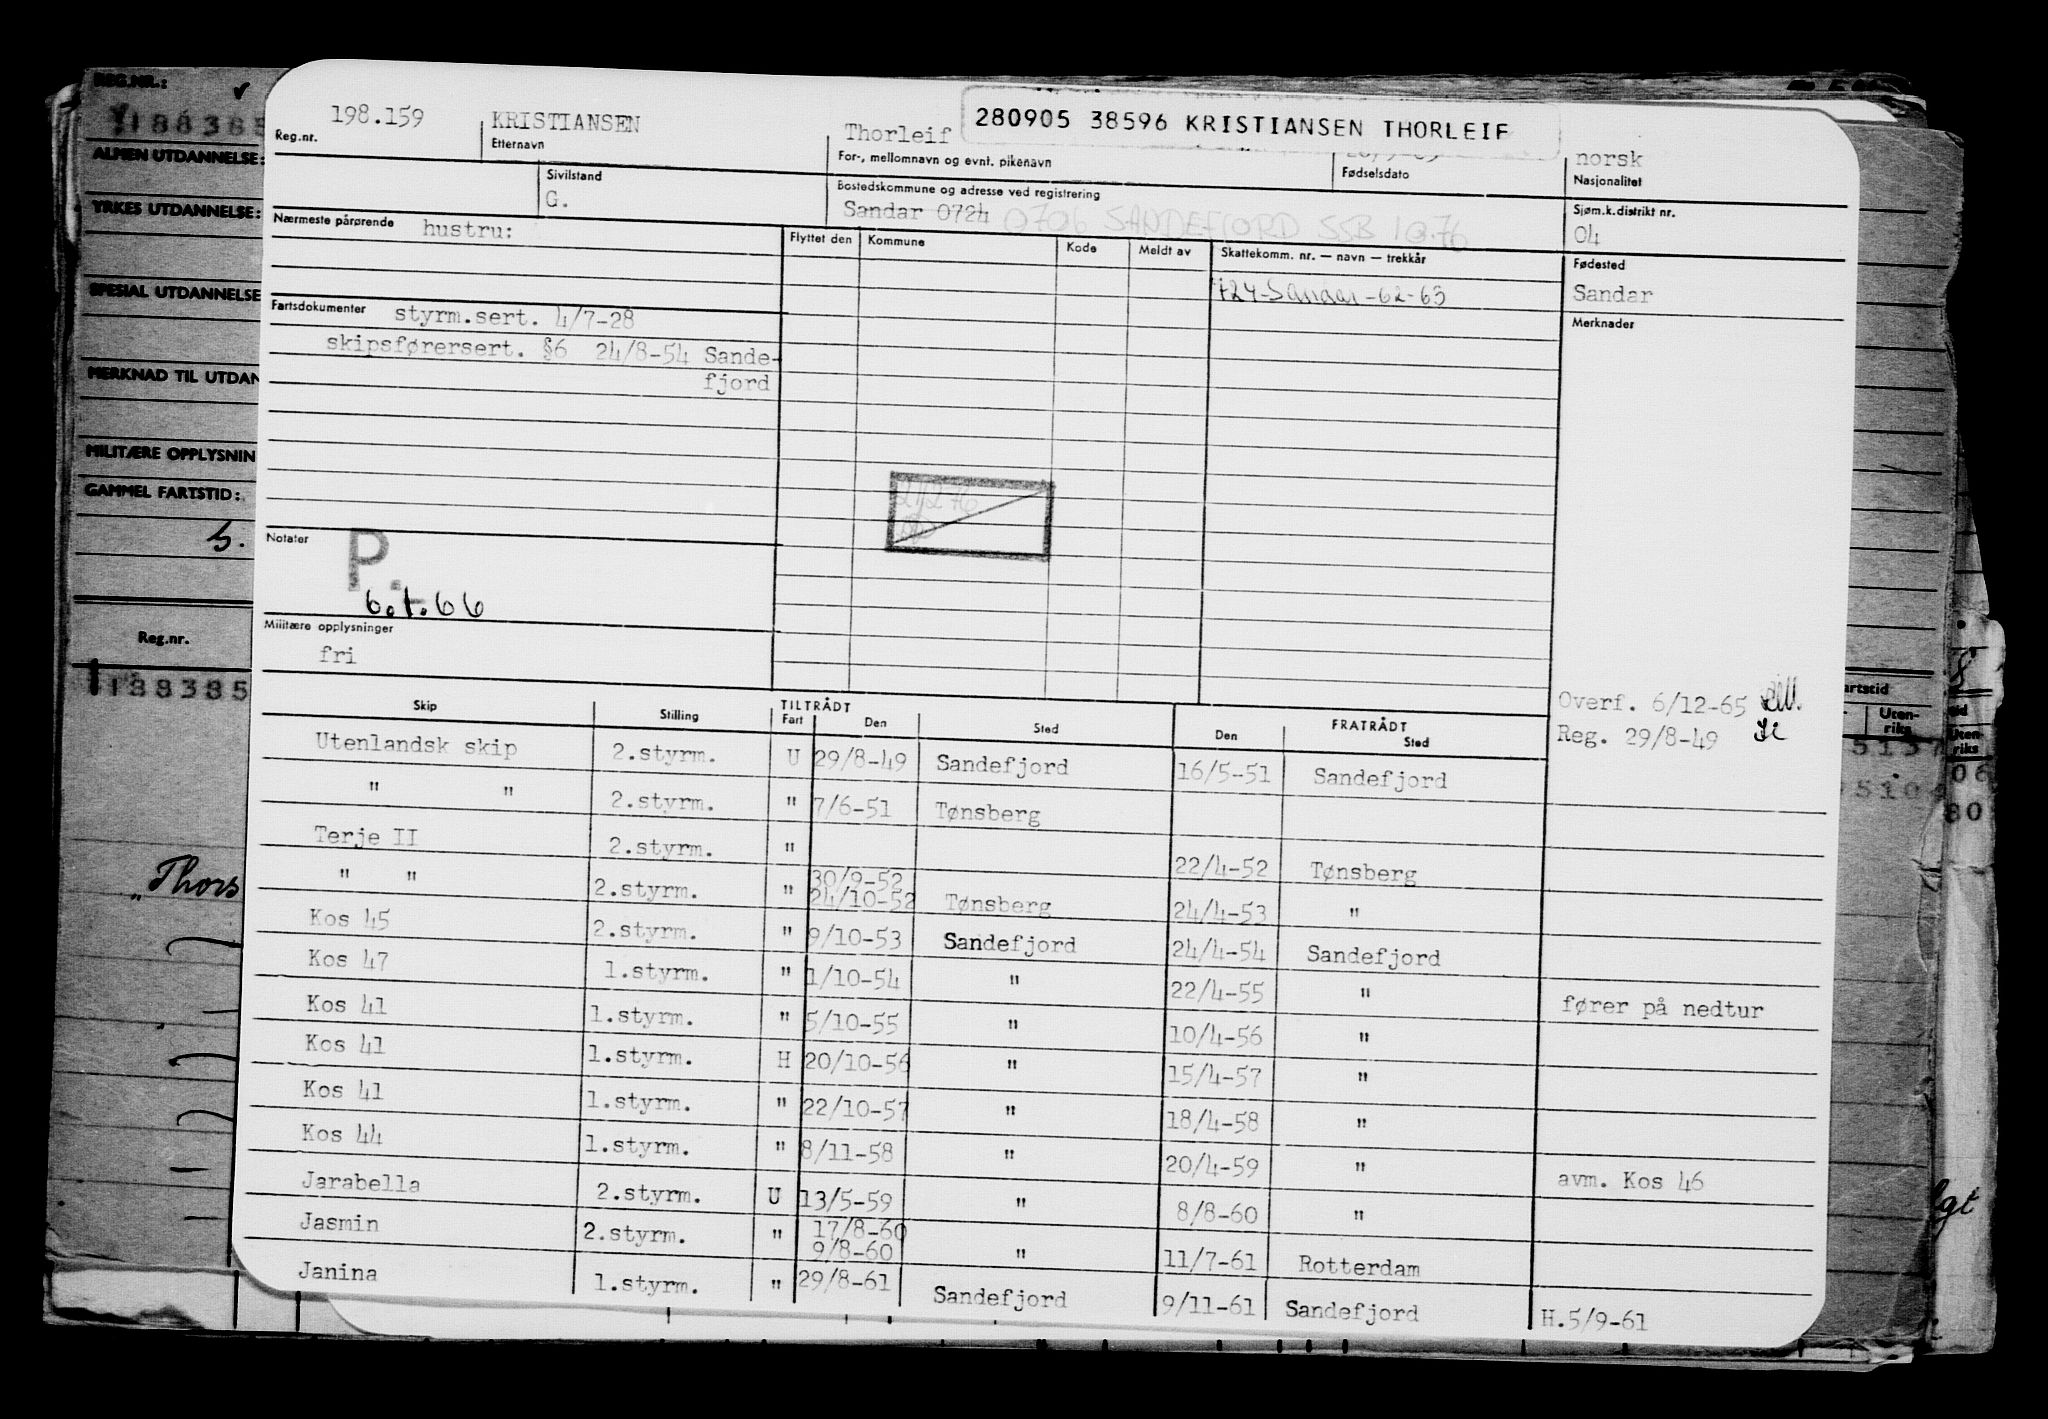 REG.NR.:
188385
ALMEN UTDANNELSE:
YRKES UTDANNELSE:
SPESIAL UTDANNELSE
MERKNAD TIL UTDAN
MILITÆRE OPPLYSNIN
GAMMEL FARTSTID:
S.
Reg.nr.
188385
"Thors
198.159
Reg.nr.
KRISTIANSEN
Etternavn
Thorleif
For-, mellomnavn og evnt. pikenavn
280905 38596 KRISTIANSEN THORLEIF
Fødselsdato
norsk
Nasjonalitet
Sivilstand
G.
Bostedskommune og adresse ved registrering
Sandar 0724 0706 SANDEFJORD SSB 10.76
Sjøm.k.distrikt nr.
04
Nærmeste pårørende hustru:
Flyttet den Kommune Kode Meldt av
Skattekomm. nr. — navn — trekkår
724-Sandar-62-63
Fødested
Sandar
Merknader
Fartsdokumenter styrm.sert. 4/7-28
skipsførersert. §6 24/8-54 Sande-
fjord
21/2 76
Notater
P.
6.1.66
Militære opplysninger
fri
Overf. 6/12-65
Reg. 29/8-49
Skip Stilling TILTRÅDT Fart Den Sted FRATRÅDT Den Sted
Utenlandsk skip 2.styrm. U 29/8-49 Sandefjord 16/5-51 Sandefjord
" " 2.styrm. " 7/6-51 Tønsberg
Terje II 2.styrm. " 22/4-52 Tønsberg
" " 2.styrm. " 30/9-52 24/10-52 Tønsberg 24/4-53 "
Kos 45 2.styrm. " 9/10-53 Sandefjord 24/4-54 Sandefjord
Kos 47 1.styrm. " 1/10-54 " 22/4-55 " fører på nedtur
Kos 41 1.styrm. " 5/10-55 " 10/4-56 "
Kos 41 1.styrm. H 20/10-56 " 15/4-57 "
Kos 41 1.styrm. " 22/10-57 " 18/4-58 "
Kos 44 1.styrm. " 8/11-58 " 20/4-59 " avm. Kos 46
Jarabella 2.styrm. U 13/5-59 " 8/8-60 "
Jasmin 2.styrm. " 17/8-60 9/8-60 " 11/7-61 Rotterdam
Janina 1.styrm. " 29/8-61 Sandefjord 9/11-61 Sandefjord H.5/9-61
artstid
Uten-
riks
Uten-
riks